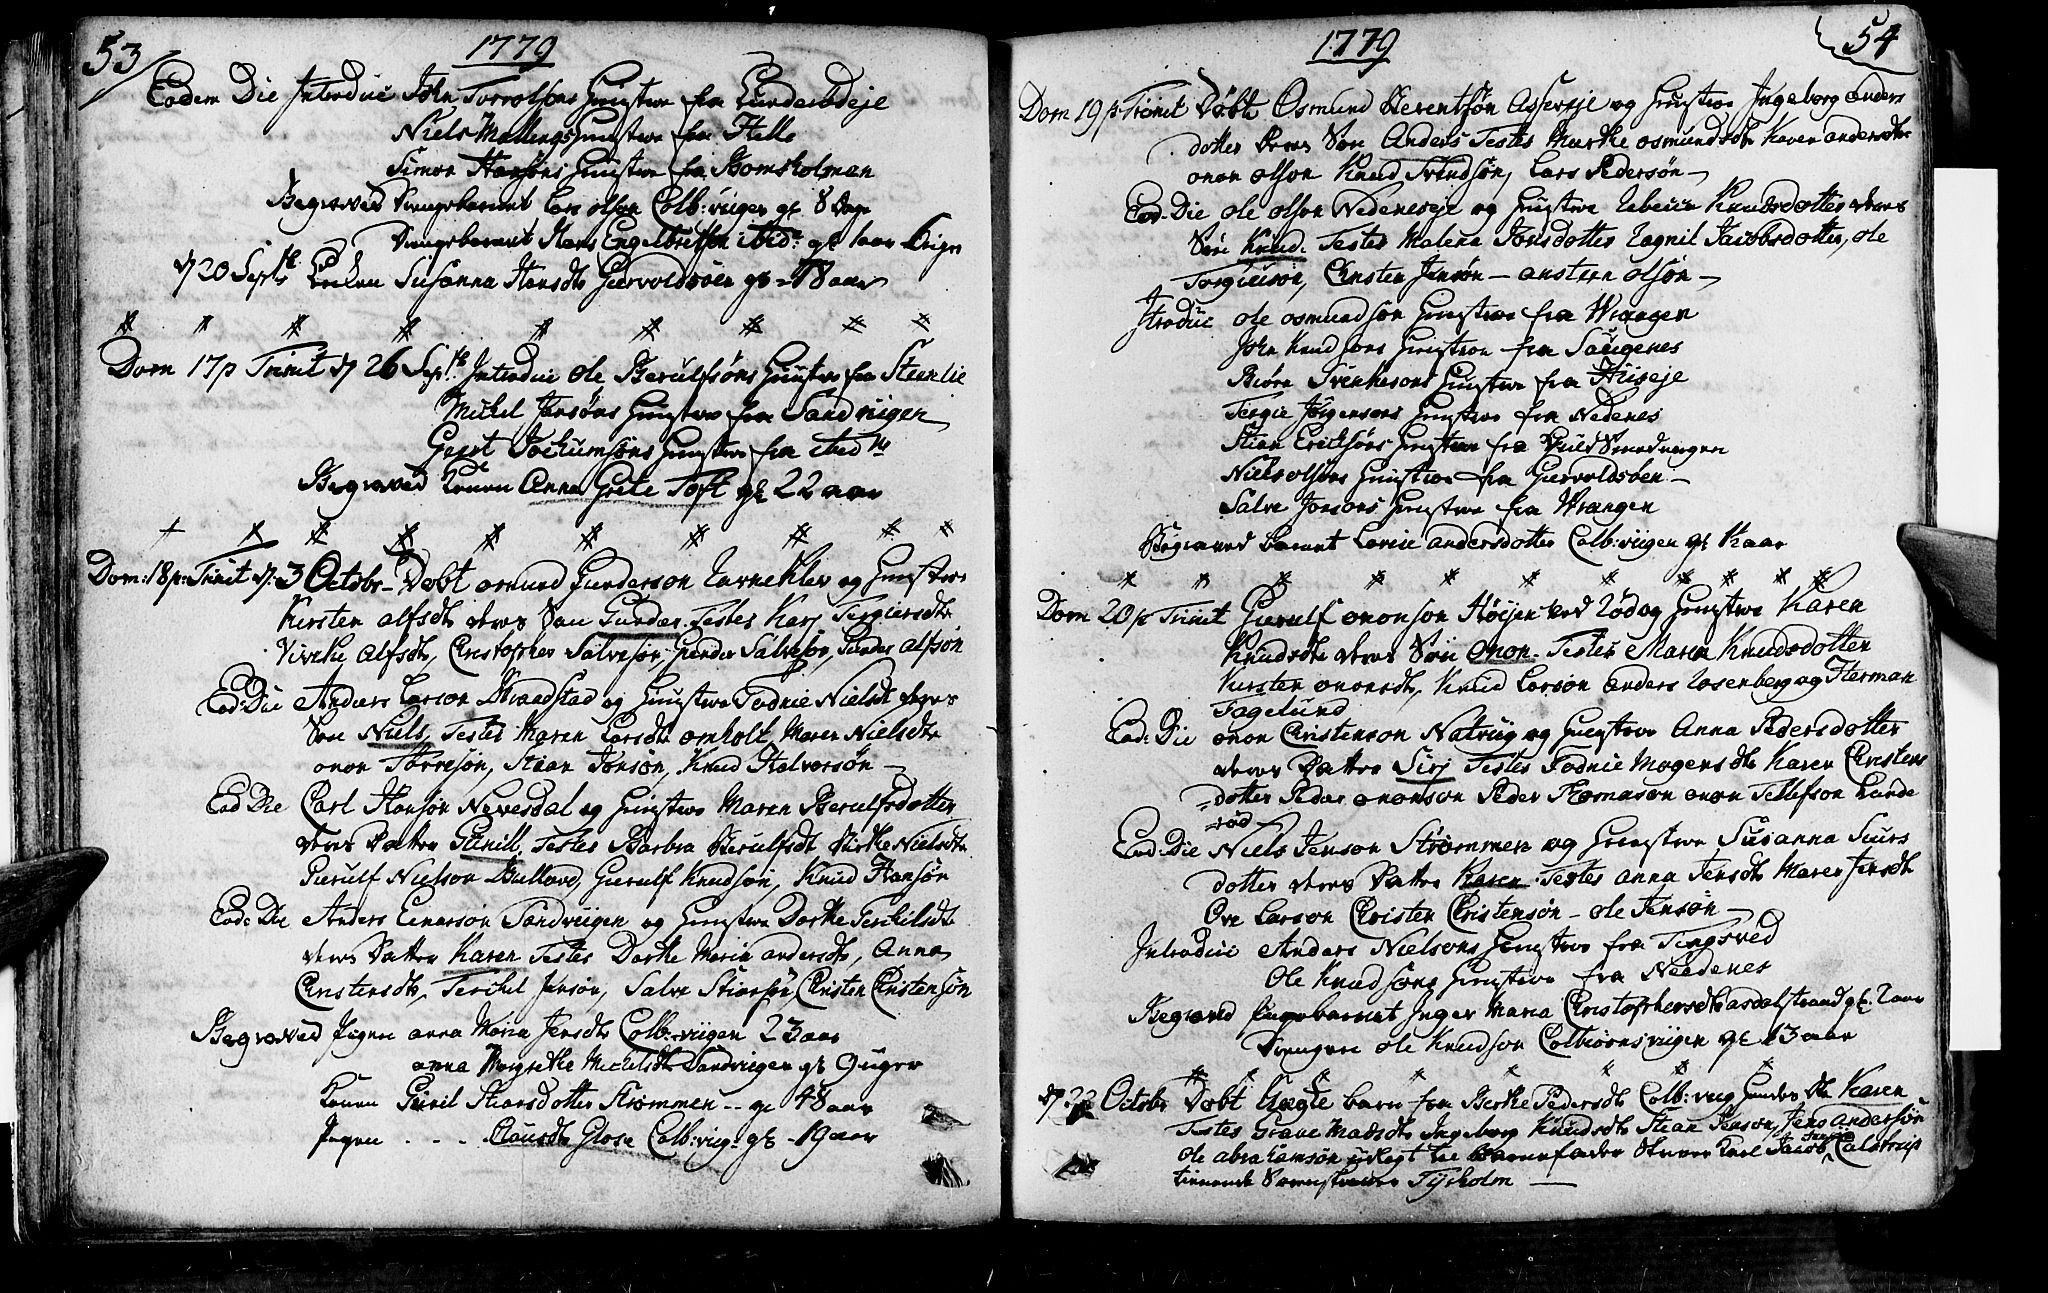 53
1779
Eodem Die Introduc John Torrolfsons Hustroe fra Lunderødeje
Niels Mallings Hustroe fra Helle
Simon Hansøns Hustroe fra Bomsholmen
Begraved Drengebarnet Lars Olson Colb:viigen gl 8 Dage
Drengebarnet Hans Engelbretsøn ibid: gl 1 aar
d 20 Septb Enken Susanna Hansdtr Giervoldsøen gl 78 aar
Dom 17 p Trinit d 26 Septb Introduc Ole Berulfsöns Hustroe fra
Michel Jansöns Hustroe fra Sandviigen
Giert Jochumsöns Hustroe fra ibid
Begraved Konen Anna Grete Toft gl 22 aar
Dom: 18 p: Trinit d: 3 Octobr Döbt Omund Gunderson Ravneklev og Hustroe
Kirsten Alfsdtr deres Søn Gunder. Testes Karj Tergiersdtr
Vivike Alfsdtr, Christopher Salvesön Gunder Salvesön, Gunder Alfsön
Eod: Die Anders Larson og Hustroe Todnie Nielsdtr deres
Søn Niels, Testes Maren Larsdtr Omholt, Maren Nielsdtr
Onon Torresön, Staan Jonsön, Knud Halvorsön
Eod Die Carl Hansön Nevesdal og Hustroe Maren Berulfsdotter
deres Datter Gunill, Testes Barbra Berulfsdtr Birthe Nielsdtr
Gierulf Nielson Gierulf Knudsön, Knud Hansön
Eod: Die Anders Einersön Sandviigen og Hustroe Dorthe Terkilsdtr
deres Datter Karen Testes Dorthe Maria Andersdtr, Anna
Christensdtr, Terchel Jensön, Salve Stiansön, Christen Christensön
Begraved Pigen Anna Maria Jensdtr Colb:viigen 23 aar
Anna Margrethe Michelsdtr Sandviigen gl 9 uger
Konen Guril Stiansdotter Strømmen gl 48 aar
Pigen . . . Clausdtr Glose Colb:viig: gl 19 aar
54
1779
Dom 19 p Trinit Döbt Osmund Berentsøn Assereje og Hustroe Ingeborg Anders
dotter deres Søn Anders Testes Marthe Osmundsdtr Karen Andersdtr
Onon Olson Knud Svendsön, Lars Pedersön
Eod: Die Ole Olson Nedeneseje og Hustroe Knudsdotter deres
Søn Knud. Testes Malena Jonsdotter Ragnil Jacobsdotter, Ole
Torgiusön, Christen Jensön Olsön
Introduc Ole Osmundson Hustroe fra Wrangen
John Knudsons Hustroe fra Saugenes
Biörn Svenkesons Hustroe fra Huseje
Tergie Jörgensons Hustroe fra Nedenes
Stian Eriksöns Hustroe fra
Niels Olsöns Hustroe fra Giervoldsøen
Salve Jonsons Hustroe fra Wrangen
Begraved barnet Lovise Andersdotter Colb:viigen gl ½ aar
Dom 20 p Trinit Gierulf Ononson Høijen ved Rød og Hustroe Karen
Knudsdtr deres Søn Onon. Testes Maren Knudsdotter
Kirsten Ononsdtr, Knud Larsön Anders Rosenberg og Herman
Fagelund
Eod: Die Onon Christenson Natvig og Hustroe Anna Pedersdotter
deres Datter Sirj Testes Todnie Mogensdtr Karen Christens
dotter Peder Ononson Peder Thomasön Onon Tellefson Lunde
rød
Eod: Die Niels Jenson Strømmen og Hustroe Susanna Siurs
dotter deres Datter Karen. Testes Anna Jensdtr Maren Jensdtr
Ove Larson Christen Christensön Ole Jensön
Introduc Anders Nielsons Hustroe fra Tingsved
Ole Knudsons Hustroe fra Needenes
Begraved Pigebarnet Inger Maria Christophersdtr Asdalstrand gl: 2 aar
Drengen Ole Knudson Colbiørnsviigen gl 13 aar
d: 22 Octobr Döbt Uægte barn fra Berthe Pedersdtr Colb:viig Karen
Testes Grave Madsdtr Ingeborg Knudsdtr Stian Jenson, Jens Andersön
Ole Abrahamsön udlagt til Barnefader Karl Jacob Calstrup
tienende Tyeholm